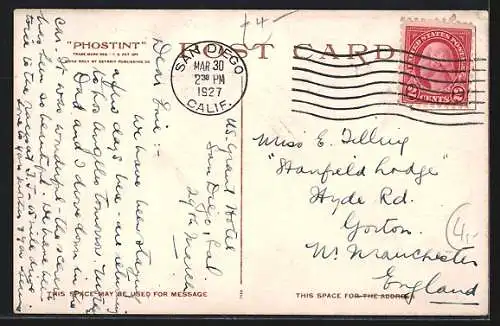 +4-
"PHOSTINT"
POST CARD
TRADE MARK REG. U.S. PAT. OFF.
MADE ONLY BY DETROIT PUBLISHING CO.
SAN DIEGO
MAR 30
2 30 PM
1927
CALIF.
UNITED STATES POSTAGE
2 CENTS 2
U.S. Grant Hotel
San Diego, Cal
29th March
Dear
we have been staying
a few days here - are returning
to Los Angeles tomorrow.
Dad and I drove down in
car. It was wonderful - the scenery
has been so beautiful. We have been
Miss E. Tilling
"Stanfield Lodge"
Hyde Rd.
Gorton.
Nr. Manchester
England
4,-
THIS SPACE MAY BE USED FOR MESSAGE
THIS SPACE FOR THE ADDRESS